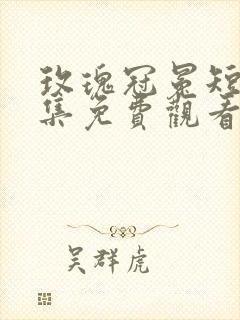 玫瑰冠冕短
集免費觀看
吴群虎